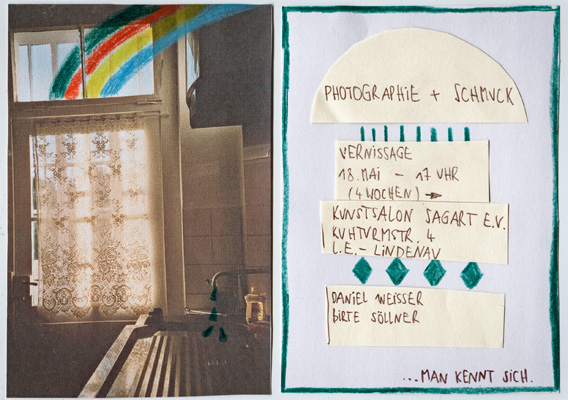 PHOTOGRAPHIE + SCHMUCK
VERNISSAGE
18. MAI – 17 UHR
(4 WOCHEN) →
KUNSTSALON SAGART E.V.
KUHTURMSTR. 4
L.E.- LINDENAU
DANIEL WEISSER
BIRTE SÖLLNER
...MAN KENNT SICH.